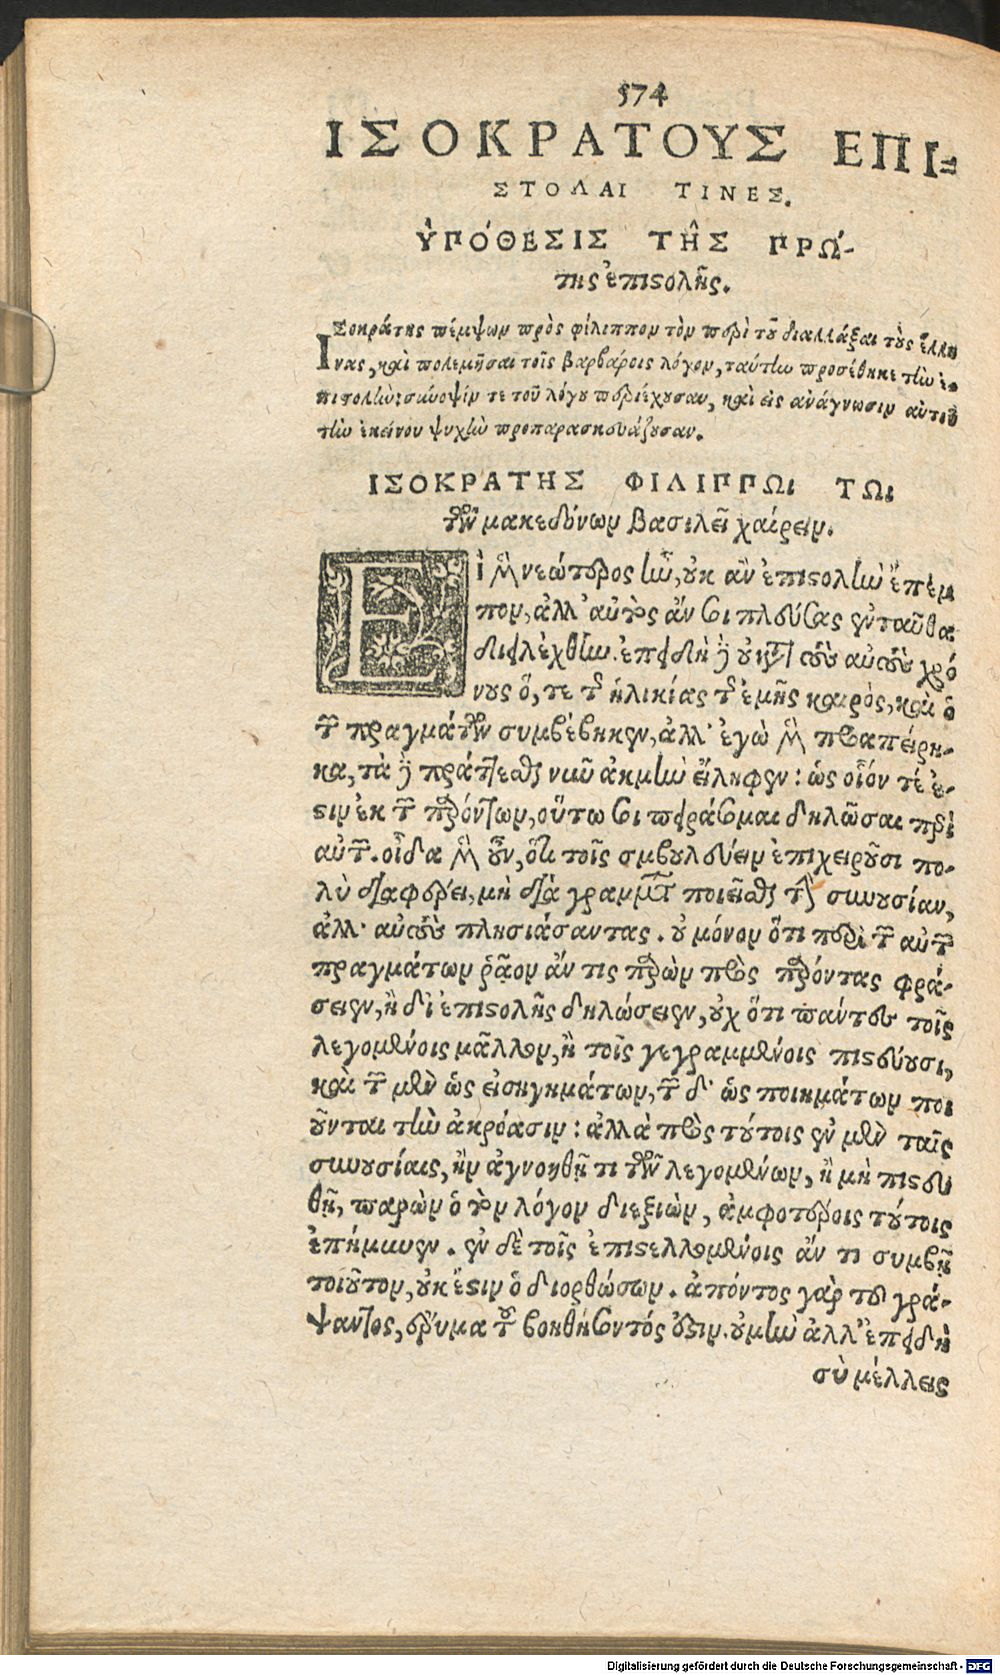 574
ΙΣΟΚΡΑΤΟΥΣ ΕΠΙ=
ΣΤΟΛΑΙ ΤΙΝΕΣ.
ὙΠΌΘΕΣΙΣ ΤΗ͂Σ ΠΡΏ-
της ἐπιϛολῆς.
ΙΣοκράτης πέμψων πρὸς φίλιππον τὸν περὶ τοῦ διαλλάξαι τοὺς ἕλλη
νας, καὶ πολεμῆσαι τοῖς βαρβάροις λόγον, ταύτην προσέθηκε τὴν ἐ-
πιστολὴν: σύνοψίν τε τοῦ λόγου περιέχουσαν, καὶ εἰς ἀνάγνωσιν αὐτοῦ
τὴν ἐκείνου ψυχὴν προπαρασκευάζουσαν.
ΙΣΟΚΡΑΤΗΣ ΦΙΛΙΠΠΩΙ ΤΩΙ
τῶν μακεδόνων βασιλεῖ χαίρειν.
ΕΙ μὲν νεώτερος ἦν, οὐκ ἂν ἐπιϛολὴν ἔπεμ
πον, ἀλλ' αὐτὸς ἄν σοι πλεύσας ἐνταῦθα
διελέχθην. ἐπειδὴ δὲ οὐ κατὰ τοὺς αὐτοὺς χρό
νους ὅ, τε τῆς ἡλικίας τῆς ἐμῆς καιρὸς, καὶ ὁ
τῶν πραγμάτων συμβέβηκεν, ἀλλ' ἐγὼ μὲν προαπείρη-
κα, τὰ δὲ πράττεσθαι νῦν ἀκμὴν εἴληφεν: ὡς οἷόν τέ ἐ-
ϛιν ἐκ τῶν παρόντων, οὕτω σοι πειράσομαι δηλῶσαι περὶ
αὐτῶν. οἶδα μὲν οὖν, ὅτι τοῖς συμβουλεύειν ἐπιχειροῦσι πο-
λὺ διαφέρει, μὴ διὰ γραμμάτων ποιεῖσθαι τὴν συνουσίαν,
ἀλλ' αὐτοὺς πλησιάσαντας. οὐ μόνον ὅτι περὶ τῶν αὐτῶν
πραγμάτων ῥᾷον ἄν τις παρὼν πρὸς παρόντας φρά-
σειεν, ἢ δι' ἐπιϛολῆς δηλώσειεν, οὐχ ὅτι πάντες τοῖς
λεγομένοις μᾶλλον, ἢ τοῖς γεγραμμένοις πιϛεύουσι,
καὶ τῶν μὲν ὡς εἰσηγημάτων, τῶν δ' ὡς ποιημάτων ποι
οῦνται τὴν ἀκρόασιν: ἀλλὰ πρὸς τούτοις ἐν μὲν ταῖς
συνουσίαις, ἢν ἀγνοηθῇ τι τῶν λεγομένων, ἢ μὴ πιϛευ
θῇ, παρὼν ὁ τὸν λόγον διεξιὼν, ἀμφοτέροις τούτοις
ἐπήμυνεν. ἐν δὲ τοῖς ἐπιϛελλομένοις ἄν τι συμβῇ
τοιοῦτον, οὐκ ἔϛιν ὁ διορθώσων. ἀπόντος γὰρ τοῦ γρά-
ψαντος, ἔρημα τοῦ βοηθήσοντός ἐϛιν. οὐ μὴν ἀλλ' ἐπειδὴ
σὺ μέλλεις
Digitalisierung gefördert durch die Deutsche Forschungsgemeinschaft - DFG